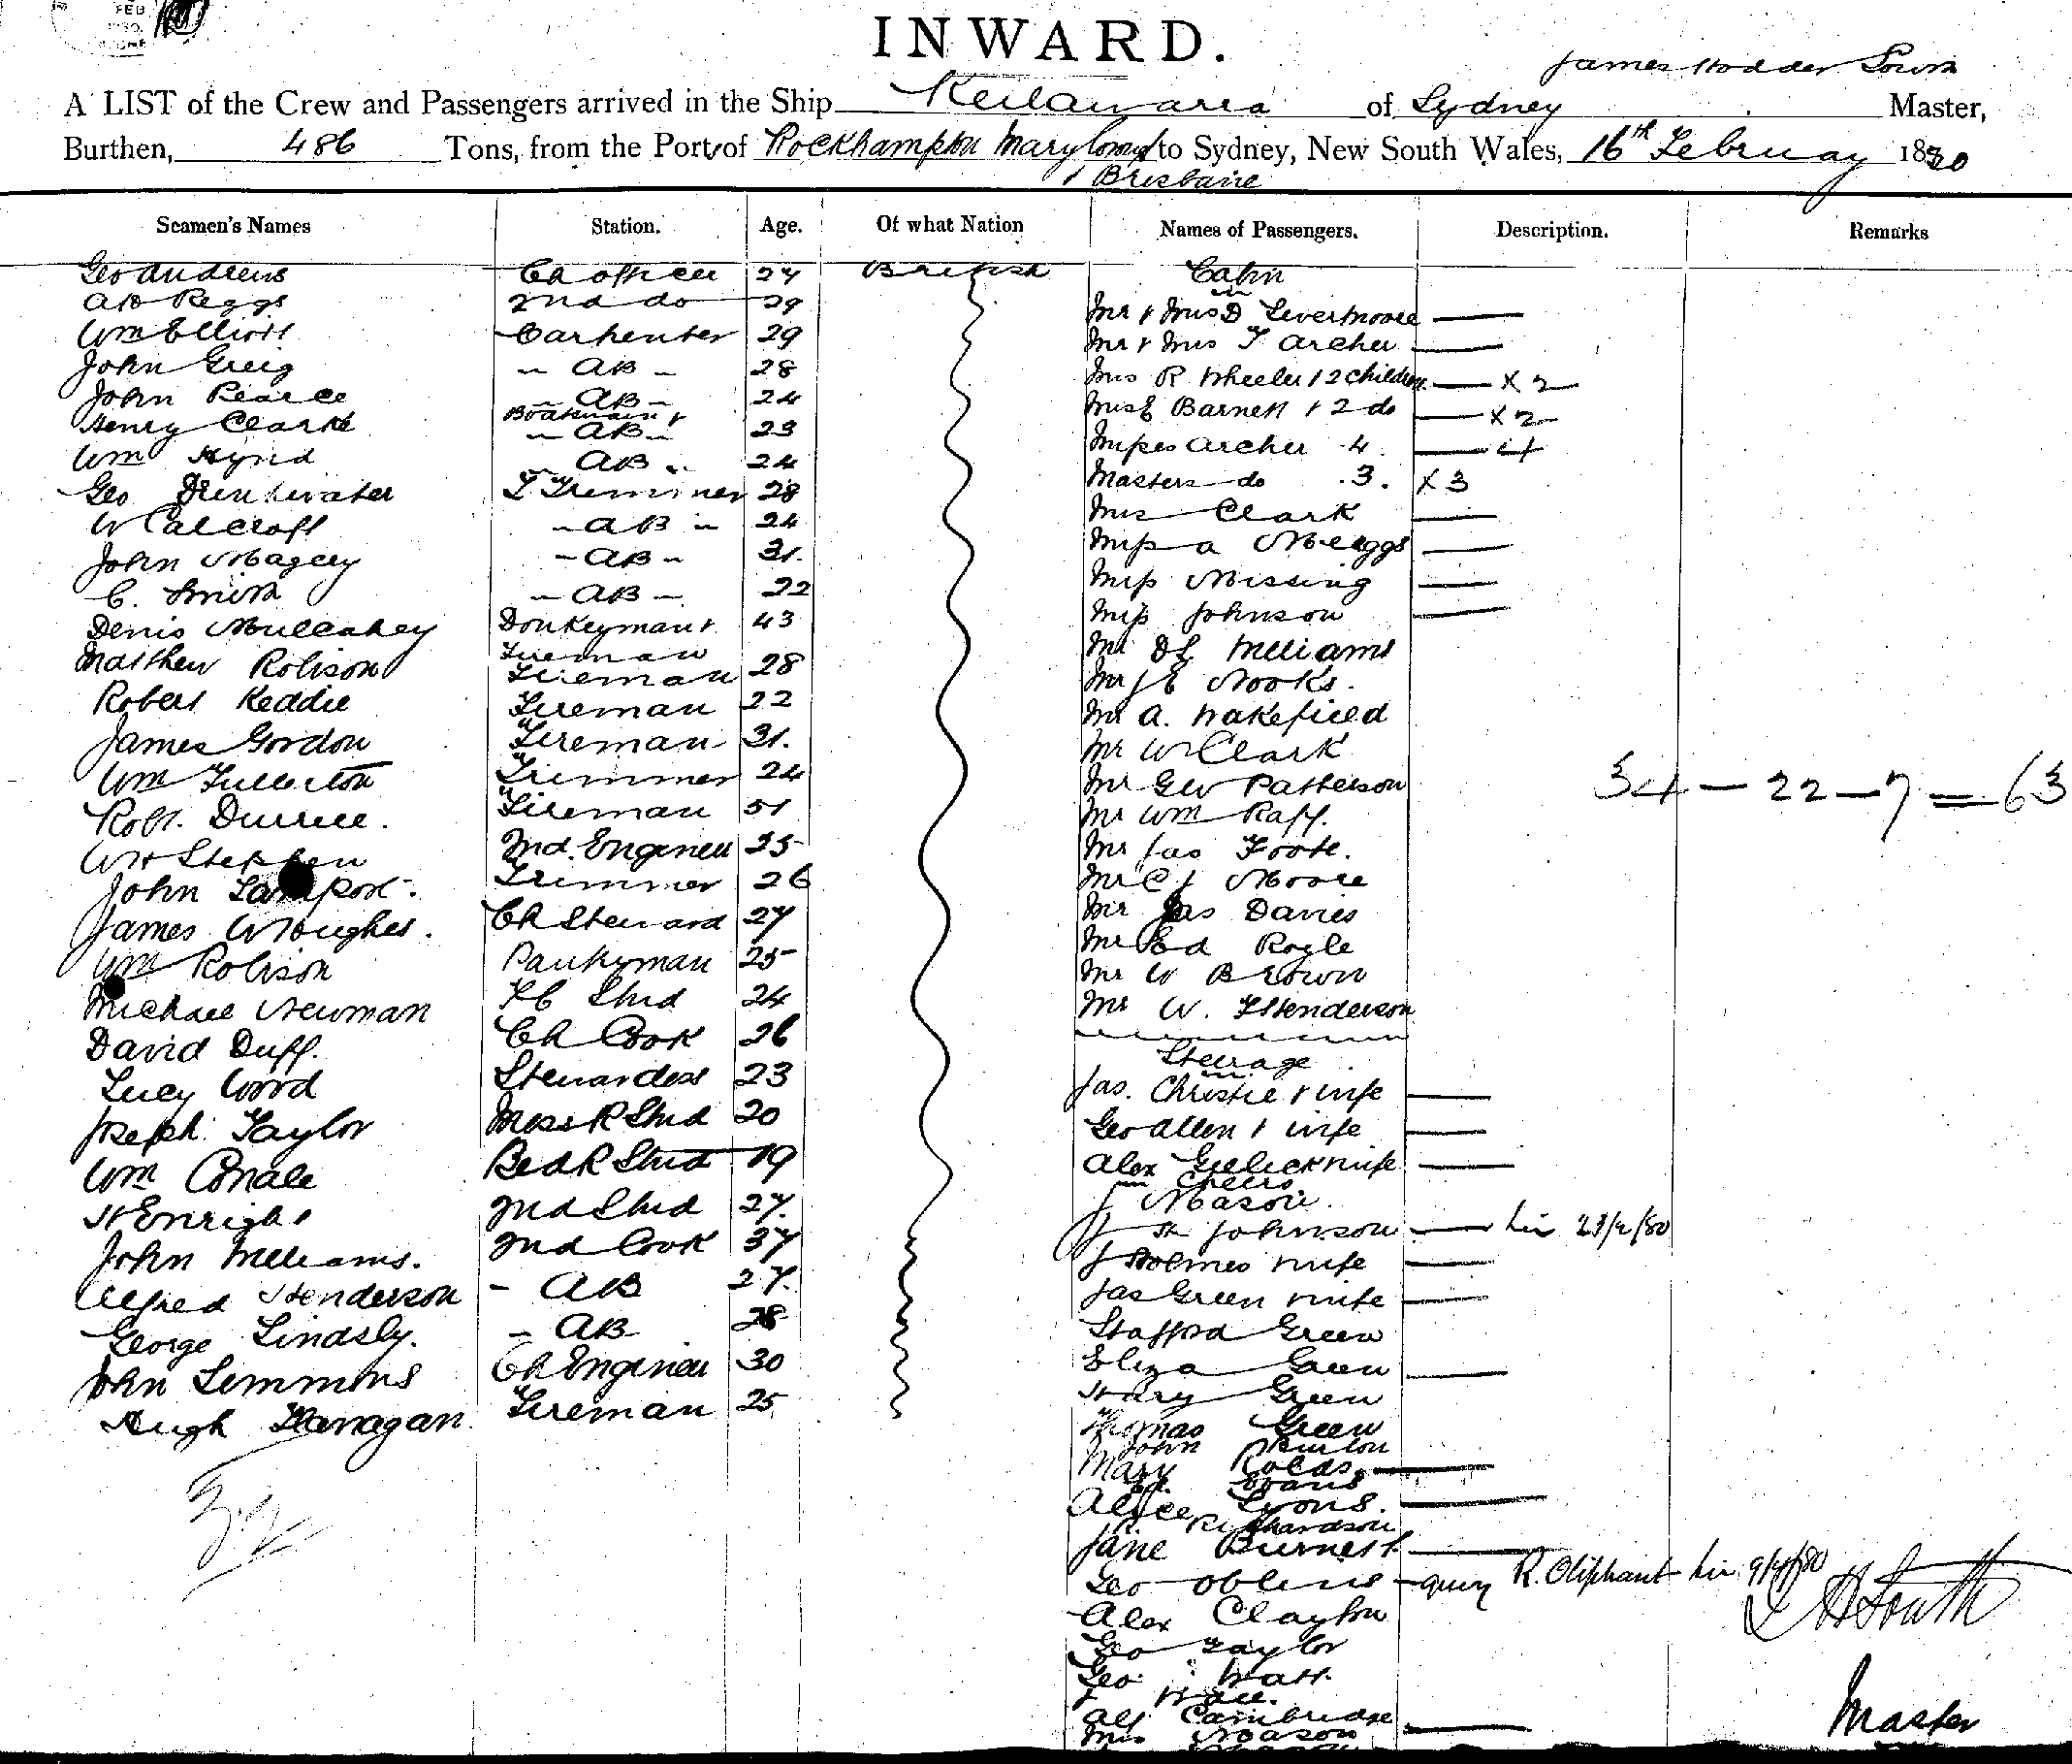 FEB
INWARD.
James Hodder South
A LIST of the Crew and Passengers arrived in the Ship Keilawarra of Sydney Master,
Burthen, 486 Tons, from the Port of Rockhampton Maryboro' to Sydney, New South Wales, 16th February 1880
& Brisbane
Seamen's Names Station. Age. Of what Nation Names of Passengers. Description. Remarks
Geo Andrews Ch Officer 27 British Cabin
2nd do 29 Mr & Mrs D Levermoore
Wm Elliott Carpenter 29 Mr & Mrs T Archer
John Greig AB 28 Mrs R Wheeler & 2 children X 2
John Pearce AB 24 Barnett & 2 do X 2
Henry Clarke Boatswain & AB 23 Misses Archer 4 4
Wm Hynd AB 24 Masters do 3. X 3
Geo Drinkwater 28 Mrs Clark
W Calcroft AB 24 Miss A Meiggs
John Magey AB 31. Miss Missing
C. Smith AB 22 Miss Johnson
Denis Mullcahey Donkeyman & Fireman 43 Mr Williams
Matthew Robison Fireman 28 Mr J E Nooks.
Robert Keddie Fireman 22 Mr A. Wakefield
James Gordon Fireman 31. Mr W Clark
Wm Fullerton Trimmer 24 Mr Geo Patterson 34 — 22 — 7 = 63
Robt. Durree. Fireman 51 Mr Wm Raff.
W H Stephen 2nd. Engineer 25 Mr Jas Foote.
John Lamport. Trimmer 26 Mr C J Moore
James W Hughes. Ch Steward 27 Mr Jas Davies
Wm Robison Pantryman 25 Mr Ed Royle
Michael Newman F C Stwd 24 Mr W Brown
David Duff. Ch Cook 26 Mr W. F Henderson
Lucy Wood Stewardess 23 Steerage
Joseph Taylor Mess R Stwd 20 Jas. Christie & wife
Wm Bed R Stwd 19 Geo Allen & wife
H Enright 2nd Stwd 27. Alex & wife
John Williams. 2nd Cook 37 J Mason.
Alfred Henderson AB 27. J H Johnson 23/2/80
George Lindsly. AB 28 J Holmes & wife
John Lemmons Ch Engineer 30 Jas Green & wife
Hugh Flanagan. Fireman 25 Stafford Green
32
Eliza Green
Harry Green
Thomas Green
John Burton
Mary
Evans
Alice Lyons.
Richardson
Jane Burnett
Geo query R. Oliphant 80
Alex Clayton
J H South
Geo Taylor
Geo Watt.
Alf Cambridge
Master
Mrs Mason